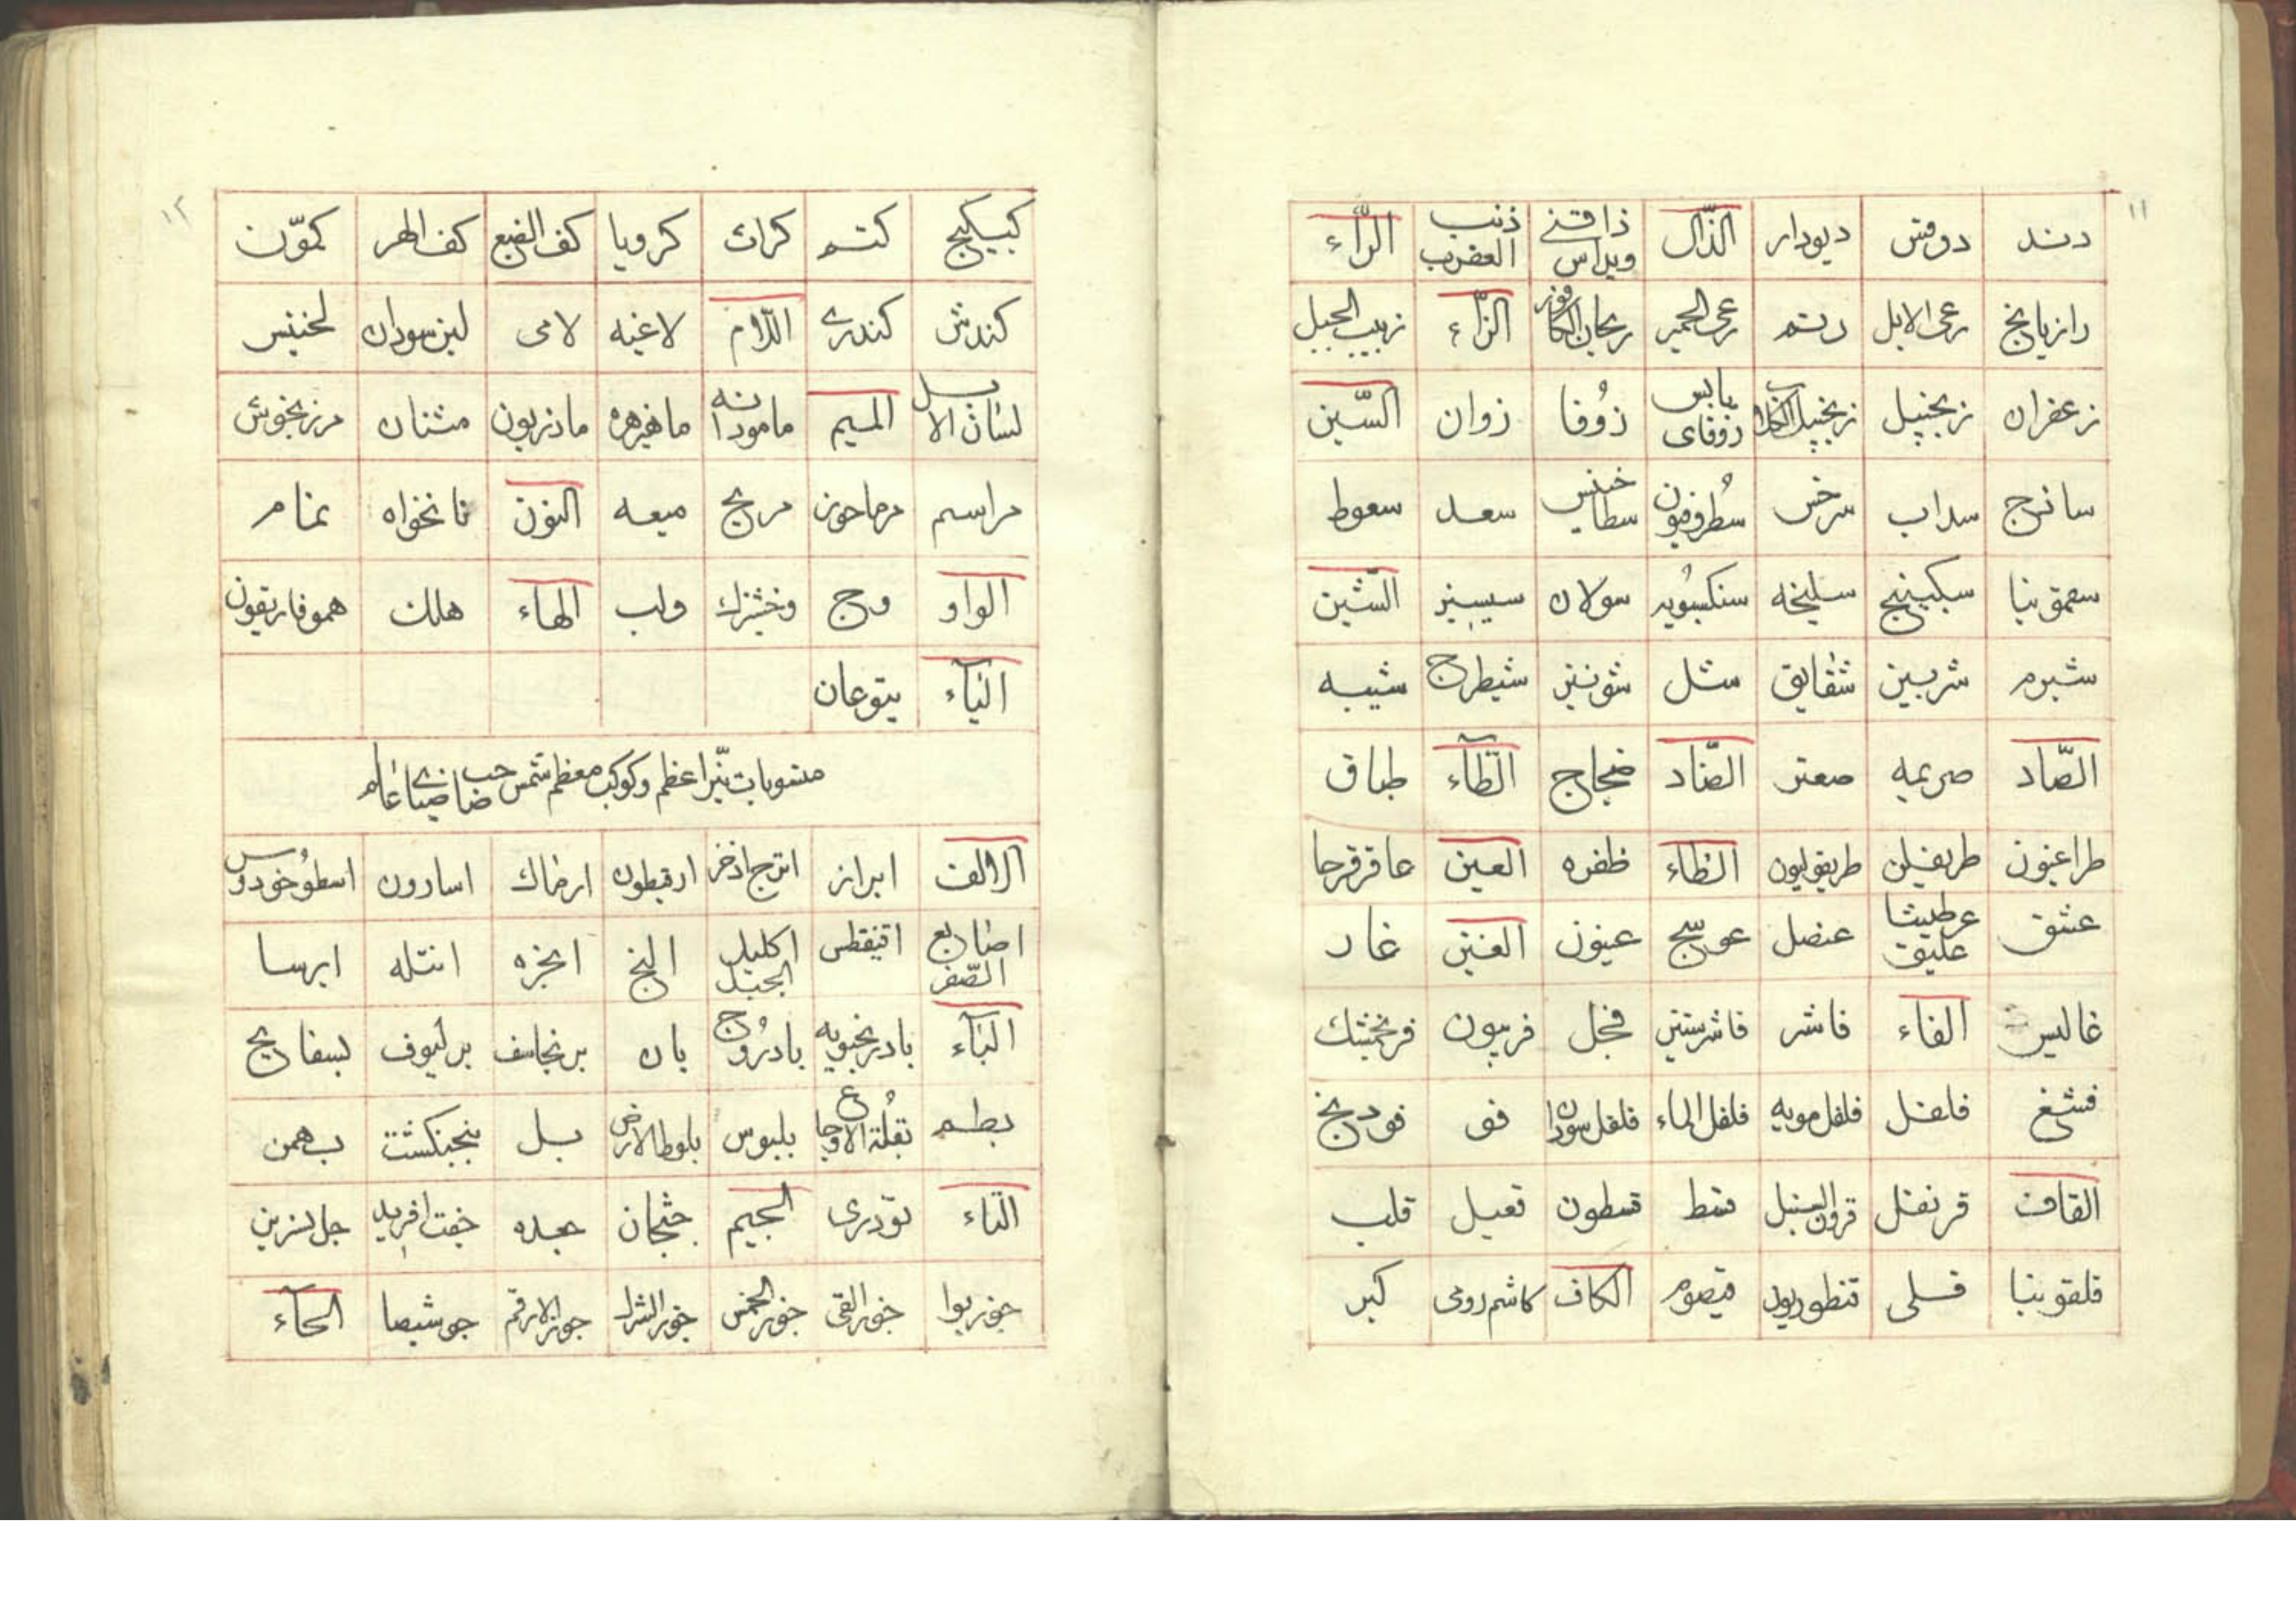 ۱۱
دند دوقس دیودار الذّال ذاقنے ویداس ذنب العقرب الرّاء
رازیانج رعی الابل رتم رعی الحمیر ریحان الکافور الزّاء زبیب الجبل
زعفران زنجبیل زنجبیل الکلاب زوفای یابس زُوفا زوان السّین
ساذج سداب سرخس سُطرونیون سطاخینس سعد سعوط
سقمونیا سکبینج سلیخه سنکسُبویه سولان سیسبنر الشّین
شبرم شربین شقایق شل شونیز شیطرج شیبه
الصّاد صریمه صعتر الضّاد ضجاج الطّآء طباق
طراغیون طریفیلن طریفولیون الظاء ظفره العین عاقرقرحا
عشق عرطنیثا علیق عنصل عوسج عینون الغین غار
غالیس الفاء فاشر فاشرستین فجل فربیون فرنجمشک
فشغ فلفل فلفل مویه فلفل الماء فلفل سودان فو فودنج
القاف قرنفل قرون السنبل قسط قسطون قعبل قلب
قلقونیا قسلی قنطوریون قیصوم الکاف کاشم رومی کبر
۱۲
کبیکج کتم کراث کرویا کف الضبع کف الهر کمّون
کندش کندرے اللّام لاغیه لامی لبن سودان لخنیس
لسان الابل المیم مامودانه ماهیزهره ماذریون مثنان مرزنجوش
مراسم مرماحوز مریح میعه النون نانخواه نمام
الواو وج وخشیزک ولب الهاء هلک هموفاریقون
الیآء یتوعان
منسوبات نیّر اعظم و کوکب معظم شمس صاحب ضیاے عالم
الالف ابراز اترج اذخر ارقیطون ارضاک اسارون اسطوُخودوس
اصابع الصّفر افینقطس اکلیل الجبل النج انجزه انتله ایرسا
البآء بادرنجبویه بادرُوج بان برنجاسف برلیوف بسفایج
بطم بقلة الاوجاع بلبوس بلوط الارض بل بنجنکشت بهمن
التاء تودری الجیم جثجان جعده جفت افرید جل نسرین
جوزبوا جوز القی جوز الخمس جوز الشرک جوز الارقم جوشیصا الحآء